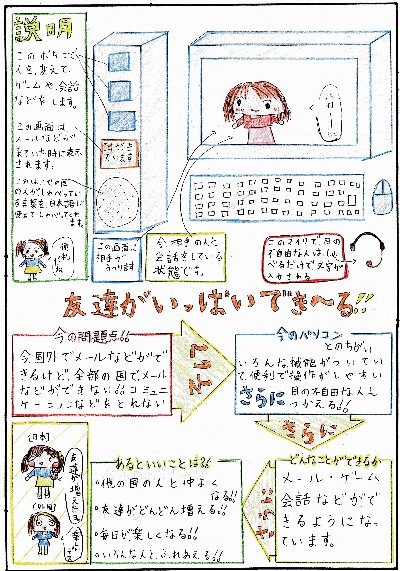 説明
このボタンで
人を変えて、
ゲームや会話
などをします。
この画面は
メールなどが
来ていた時に表示
されます。
この画面に
相手が
うつります
今相手の人と
会話をしている
状態です。
このマイクで、目の
不自由な人はしゃ
べるだけで文字が
入力される
友達がいっぱいでき～る!!
今の問題点!!
今国外でメールなどがで
きるけど、全部の国でメール
などができない!!コミュニ
ケーションなどをとれない
今のパソコン
とのちがい
いろんな機能がついてい
て便利で操作がしやすい
さらに 目の不自由な人も
つかえる!!
さらに
どんなことができるか
メール・ゲーム
会話などがで
きるようになっ
ています。
あるといいことは!!
・他の国の人と仲よく
なる!!
・友達がどんどん増える!!
・毎日が楽しくなる!!
・いろんな人と、ふれあえる!!
日本
友達が
増えたよ